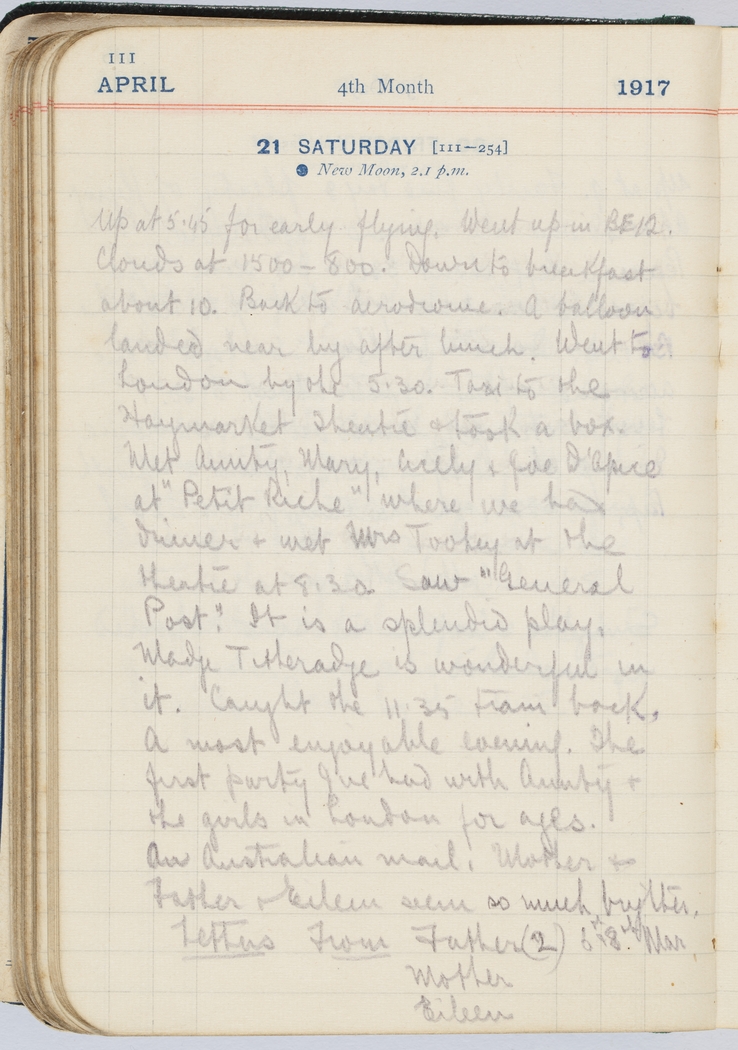 III
APRIL 4th Month 1917
21 SATURDAY [111—254]
● New Moon, 2.1 p.m.
Up at 5.45 for early flying. Went up in BE12.
Clouds at 1500 – 800. Down to breakfast
about 10. Back to aerodrome. A balloon
landed near by after lunch. Went to
London by the 5.30. Taxi to the
Haymarket Theatre & took a box.
Met Aunty, Mary, Cicely & Joe D'Apice
at "Petit Riche" where we had
dinner & met Mrs Toohey at the
theatre at 8.30. Saw "General
Post". It is a splendid play.
Madge Titheradge is wonderful in
it. Caught the 11.35 train back.
A most enjoyable evening. The
first party I've had with Aunty &
the girls in London for ages.
An Australian mail. Mother &
Father & Eileen seem so much brighter.
Letters From Father (2) & 8th Mar.
Mother
Eileen